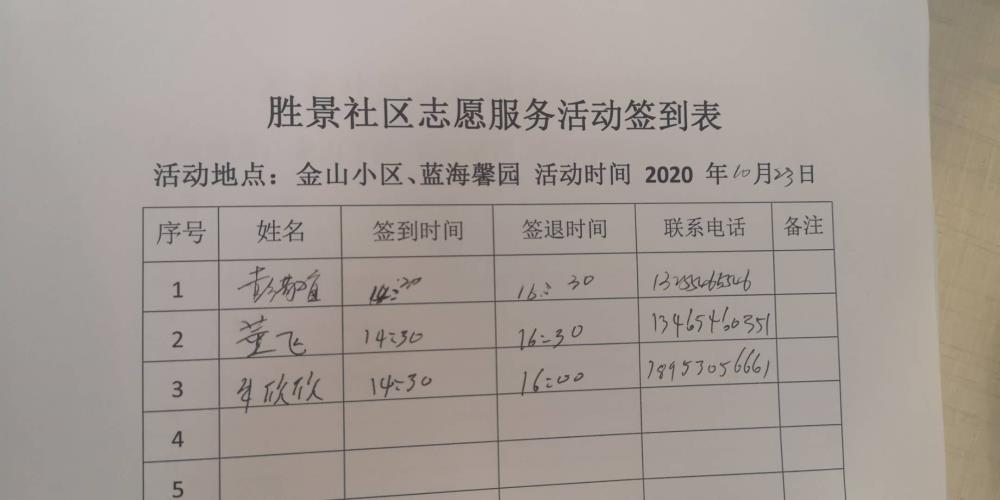 胜景社区志愿服务活动签到表
活动地点：金山小区、蓝海馨园 活动时间 2020 年10月23日
序号 姓名 签到时间 签退时间 联系电话 备注
1 14:30 16:30
2 董飞 14:30 16:30 13465460351
3 欣欣 14:30 16:00 18953056661
4
5